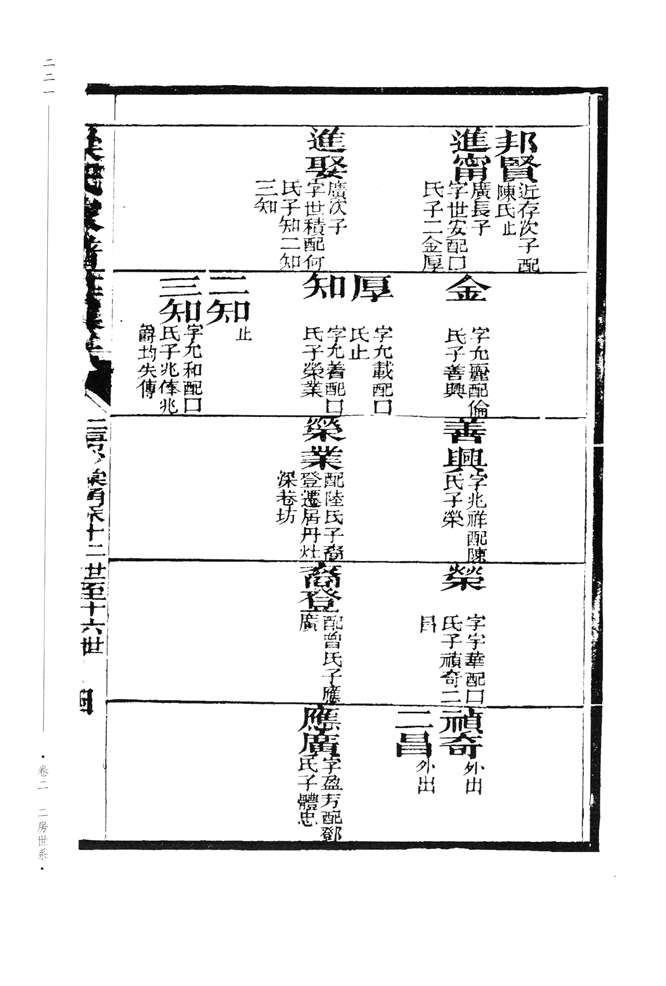 邦賢
近存次子配
陳氏止
進甯
廣長子
字世安配口
氏子二金厚
進娶
廣次子
字世積配何
氏子知二知
三知
金
字允麗配倫
氏子善興
厚
字允載配口
氏止
知
字允着配口
氏子榮業
二知
止
三知
字允和配口
氏子兆俸兆
爵均失傳
善興
字兆祥配陳
氏子榮
榮業
配陸氏子裔
登遷居丹灶
深巷坊
榮
字宇華配口
氏子禎奇二
昌
裔登
配曾氏子應
廣
禎奇
外出
二昌
外出
應廣
字盈芳配鄧
氏子體忠
十二世至十六世
二二一
·卷二 二房世系·